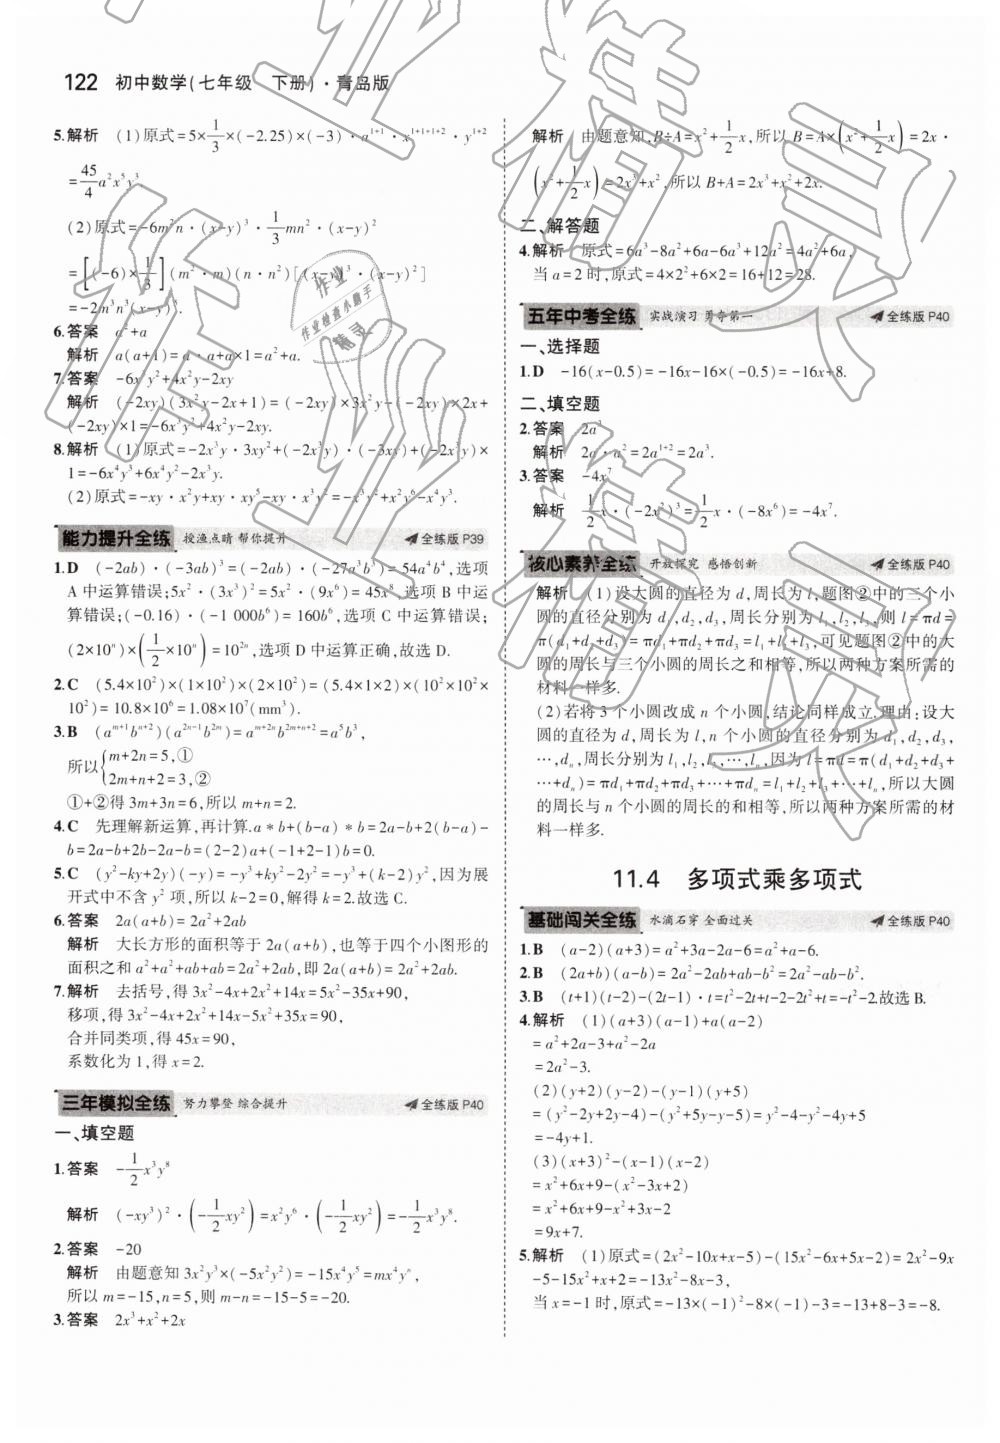 122 初中数学(七年级 下册)·青岛版
5.解析 (1)原式=5×1/3×(-2.25)×(-3)·a^{1+1}·x^{1+1+1+2}·y^{1+2}
=45/4 a²x⁵y³.
(2)原式=-6m²n·(x-y)³·1/3 mn²·(x-y)²
=[(-6)×1/3](m²·m)(n·n²)[(x-y)³·(x-y)²]
=-2m³n³(x-y)⁵.
6.答案 a²+a
解析 a(a+1)=a·a+a×1=a²+a.
7.答案 -6x³y²+4x²y-2xy
解析 (-2xy)(3x²y-2x+1)=(-2xy)×3x²y-(-2xy)×2x+
(-2xy)×1=-6x³y²+4x²y-2xy.
8.解析 (1)原式=-2x³y·3xy²+(-2x³y)·(-3xy)+(-2x³y)×
1=-6x⁴y³+6x⁴y²-2x³y.
(2)原式=-xy·x²y+xy·xy⁵-xy·x³y²=-x³y²+x²y⁶-x⁴y³.
能力提升全练 授渔点睛 帮你提升 全练版 P39
1.D (-2ab)·(-3ab)³=(-2ab)·(-27a³b³)=54a⁴b⁴,选项
A 中运算错误;5x²·(3x³)²=5x²·(9x⁶)=45x⁸,选项 B 中运
算错误;(-0.16)·(-1 000b⁶)=160b⁶,选项 C 中运算错误;
(2×10ⁿ)×(1/2×10ⁿ)=10²ⁿ,选项 D 中运算正确,故选 D.
2.C (5.4×10²)×(1×10²)×(2×10²)=(5.4×1×2)×(10²×10²×
10²)=10.8×10⁶=1.08×10⁷(mm³).
3.B (a^{m+1}b^{n+2})(a^{2n-1}b^{2m})=a^{m+2n}b^{2m+n+2}=a⁵b³,
所以{m+2n=5,①
2m+n+2=3,②
①+②得 3m+3n=6,所以 m+n=2.
4.C 先理解新运算,再计算.a*b+(b-a)*b=2a-b+2(b-a)-
b=2a-b+2b-2a-b=(2-2)a+(-1+2-1)b=0.
5.C (y²-ky+2y)(-y)=-y³+ky²-2y²=-y³+(k-2)y²,因为展
开式中不含 y² 项,所以 k-2=0,解得 k=2.故选 C.
6.答案 2a(a+b)=2a²+2ab
解析 大长方形的面积等于 2a(a+b),也等于四个小图形的
面积之和 a²+a²+ab+ab=2a²+2ab,即 2a(a+b)=2a²+2ab.
7.解析 去括号,得 3x²-4x+2x²+14x=5x²-35x+90,
移项,得 3x²-4x+2x²+14x-5x²+35x=90,
合并同类项,得 45x=90,
系数化为 1,得 x=2.
三年模拟全练 努力攀登 综合提升 全练版 P40
一、填空题
1.答案 -1/2 x³y⁸
解析 (-xy³)²·(-1/2 xy²)=x²y⁶·(-1/2 xy²)=-1/2 x³y⁸.
2.答案 -20
解析 由题意知 3x²y³×(-5x²y²)=-15x⁴y⁵=mx⁴yⁿ,
所以 m=-15,n=5,则 m-n=-15-5=-20.
3.答案 2x³+x²+2x
解析 由题意知,B÷A=x²+1/2 x,所以 B=A×(x²+1/2 x)=2x·
(x²+1/2 x)=2x³+x²,所以 B+A=2x³+x²+2x.
二、解答题
4.解析 原式=6a³-8a²+6a-6a³+12a²=4a²+6a,
当 a=2 时,原式=4×2²+6×2=16+12=28.
五年中考全练 实战演习 勇夺第一 全练版 P40
一、选择题
1.D -16(x-0.5)=-16x-16×(-0.5)=-16x+8.
二、填空题
2.答案 2a³
解析 2a·a²=2a^{1+2}=2a³.
3.答案 -4x⁷
解析 1/2 x·(-2x²)³=1/2 x·(-8x⁶)=-4x⁷.
核心素养全练 开放探究 感悟创新 全练版 P40
解析 (1)设大圆的直径为 d,周长为 l,题图②中的三个小
圆的直径分别为 d₁,d₂,d₃,周长分别为 l₁,l₂,l₃,则 l=πd=
π(d₁+d₂+d₃)=πd₁+πd₂+πd₃=l₁+l₂+l₃,可见题图②中的大
圆的周长与三个小圆的周长之和相等,所以两种方案所需的
材料一样多.
(2)若将 3 个小圆改成 n 个小圆,结论同样成立.理由:设大
圆的直径为 d,周长为 l,n 个小圆的直径分别为 d₁,d₂,d₃,
…,dₙ,周长分别为 l₁,l₂,l₃,…,lₙ,因为 l=πd=π(d₁+d₂+d₃+
…+dₙ)=πd₁+πd₂+πd₃+…+πdₙ=l₁+l₂+l₃+…+lₙ,所以大圆
的周长与 n 个小圆的周长的和相等,所以两种方案所需的材
料一样多.
11.4 多项式乘多项式
基础闯关全练 水滴石穿 全面过关 全练版 P40
1.B (a-2)(a+3)=a²+3a-2a-6=a²+a-6.
2.B (2a+b)(a-b)=2a²-2ab+ab-b²=2a²-ab-b².
3.B (t+1)(t-2)-(2t-1)·t=t²-2t+t-2-2t²+t=-t²-2.故选 B.
4.解析 (1)(a+3)(a-1)+a(a-2)
=a²+2a-3+a²-2a
=2a²-3.
(2)(y+2)(y-2)-(y-1)(y+5)
=(y²-2y+2y-4)-(y²+5y-y-5)=y²-4-y²-4y+5
=-4y+1.
(3)(x+3)²-(x-1)(x-2)
=x²+6x+9-(x²-3x+2)
=x²+6x+9-x²+3x-2
=9x+7.
5.解析 (1)原式=(2x²-10x+x-5)-(15x²-6x+5x-2)=2x²-9x
-5-15x²+x+2=-13x²-8x-3,
当 x=-1 时,原式=-13×(-1)²-8×(-1)-3=-13+8-3=-8.
作业精灵
作业精灵
作业
作业检查小助手
精灵